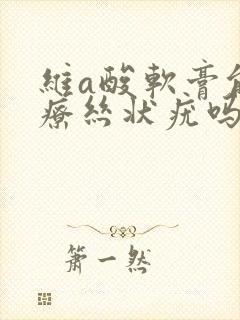 維a酸軟膏能
療絲状疣吗
簫一然